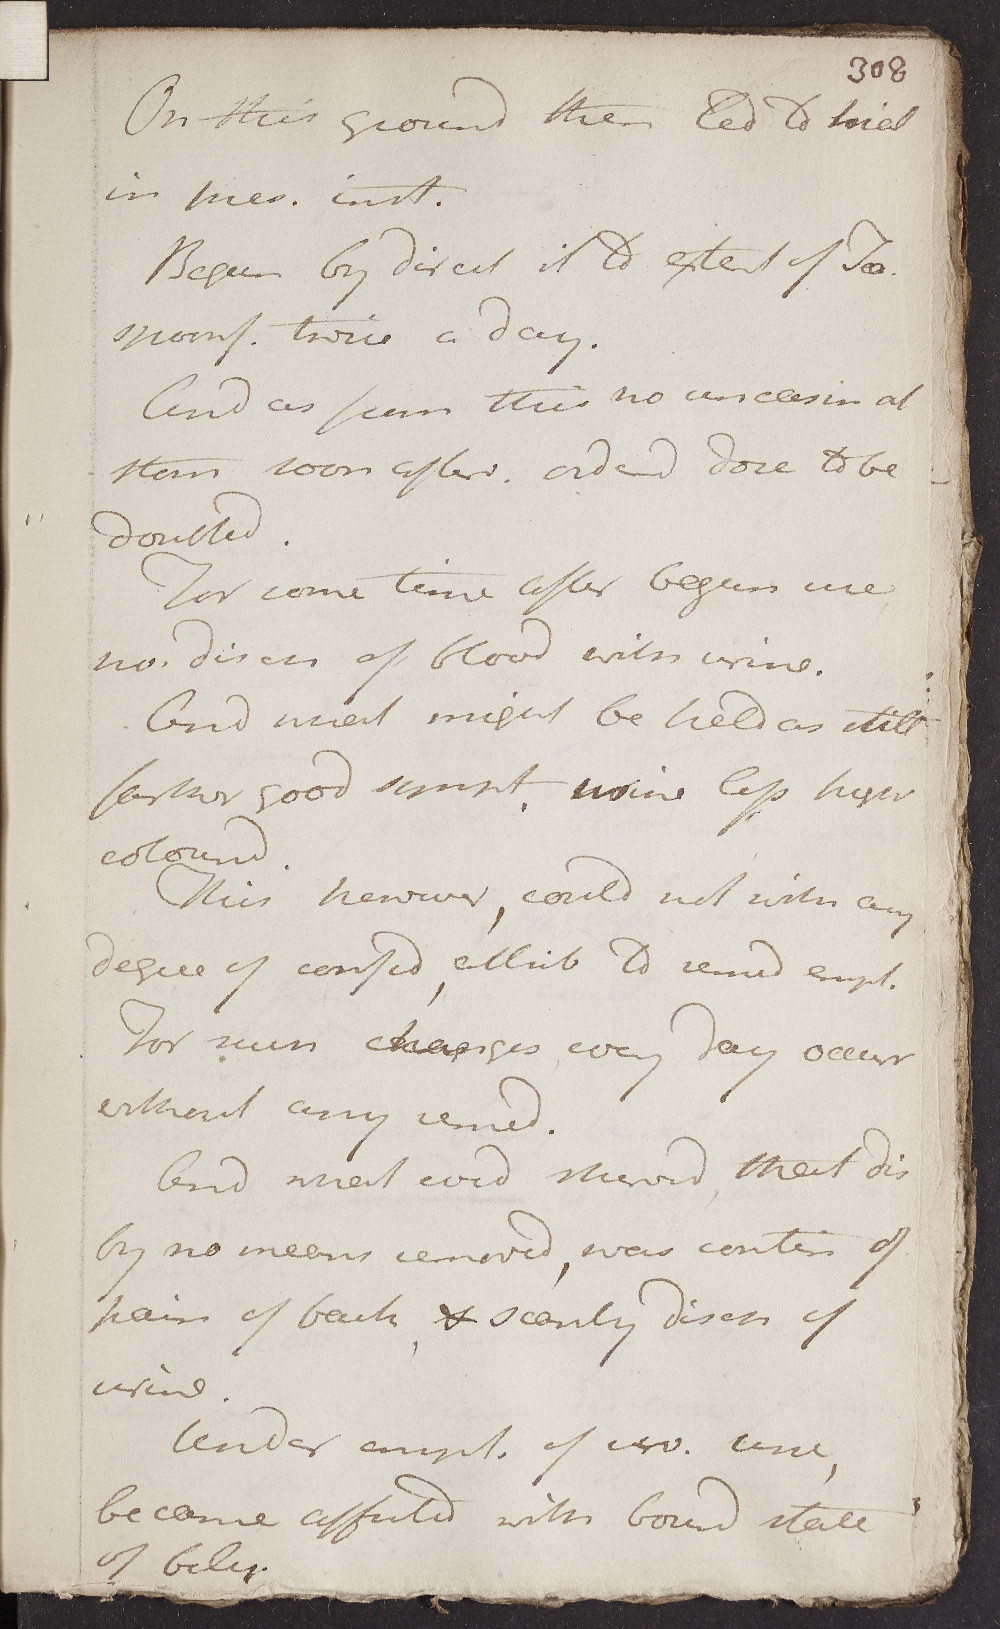 308
On this ground then led to trial
in pres. inst.
Began by direct it to extent of Tea
spoonf. twice a day.
And as from this no uneasin at
stom soon afterw. ordered dose to be
doubled.
For some time after begun use
no. disch of blood with urine.
And what might be held as still
farther good sympt, urine less high
coloured.
This however, could not with any
degree of confid, attrib to remed empl.
For such changes every day occur
without any remed.
And what evid shewed, that dis
by no means removed, was contin of
pain of back, & scanty disch of
urine.
Under empl. of uv. urs,
became affected with bound state
of belly.